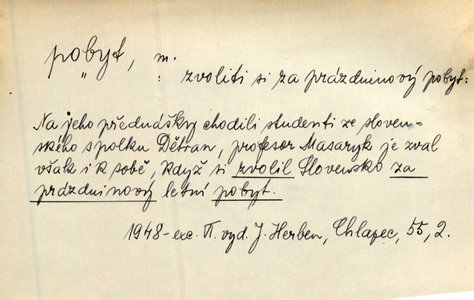 pobyt, m.
: zvoliti si za prázdninový pobyt:
Na jeho přednášky chodili studenti ze sloven-
ského spolku Dětvan, profesor Masaryk je zval
však i k sobě, když si zvolil Slovensko za
prázdninový letní pobyt.
1948 - exc. VI. vyd. J. Herben, Chlapec, 55, 2.